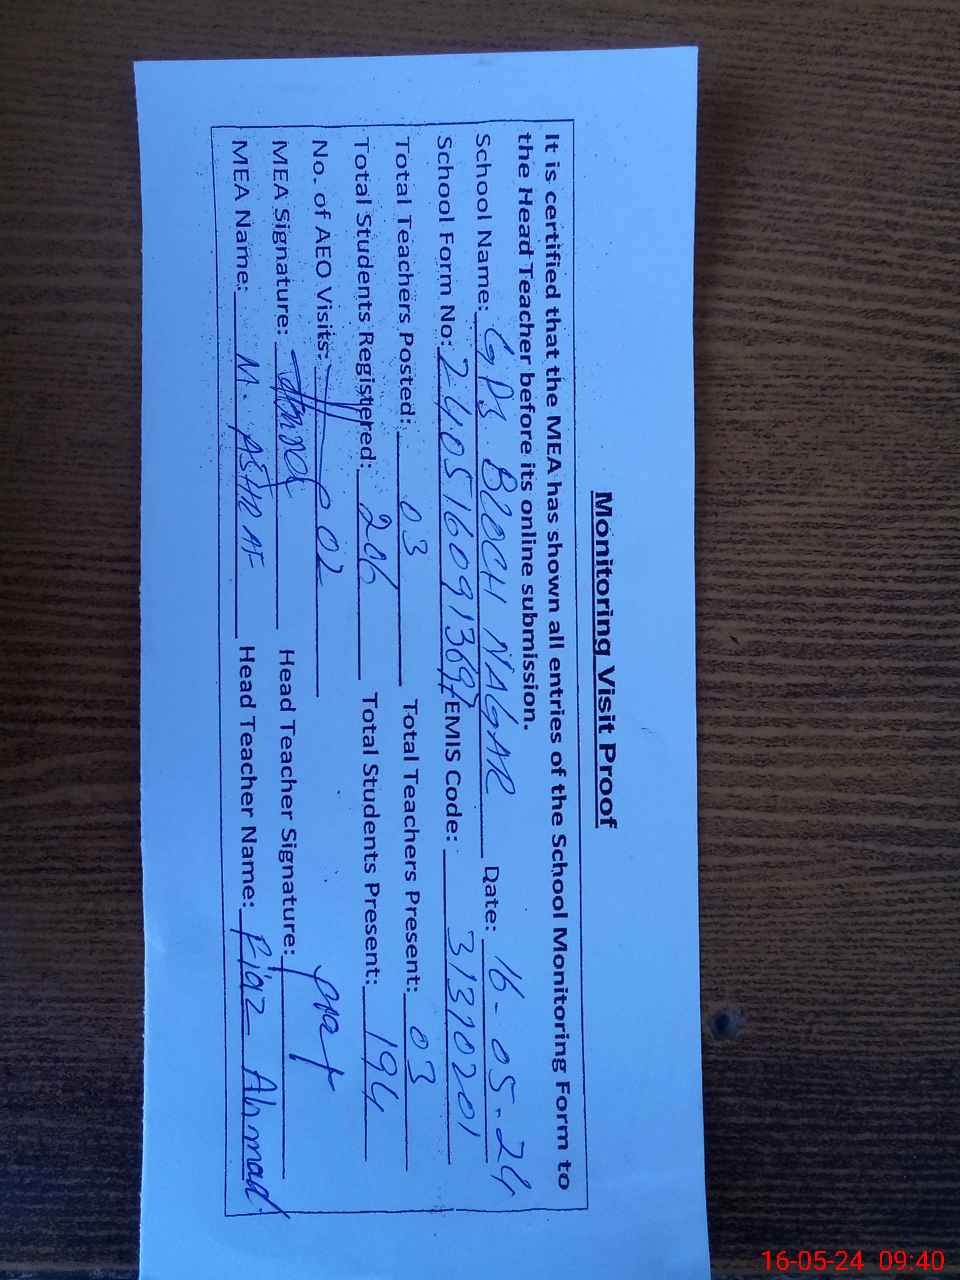 Monitoring Visit Proof
It is certified that the MEA has shown all entries of the School Monitoring Form to
the Head Teacher before its online submission.
School Name: GPS BLOCH NAGAR Date: 16-05-24
School Form No: 2405160913697 EMIS Code: 31370201
Total Teachers Posted: 03 Total Teachers Present: 03
Total Students Registered: 206 Total Students Present: 194
No. of AEO Visits: 02
MEA Signature: Head Teacher Signature:
MEA Name: M. ASHRAF Head Teacher Name: Riaz Ahmad
16-05-24 09:40